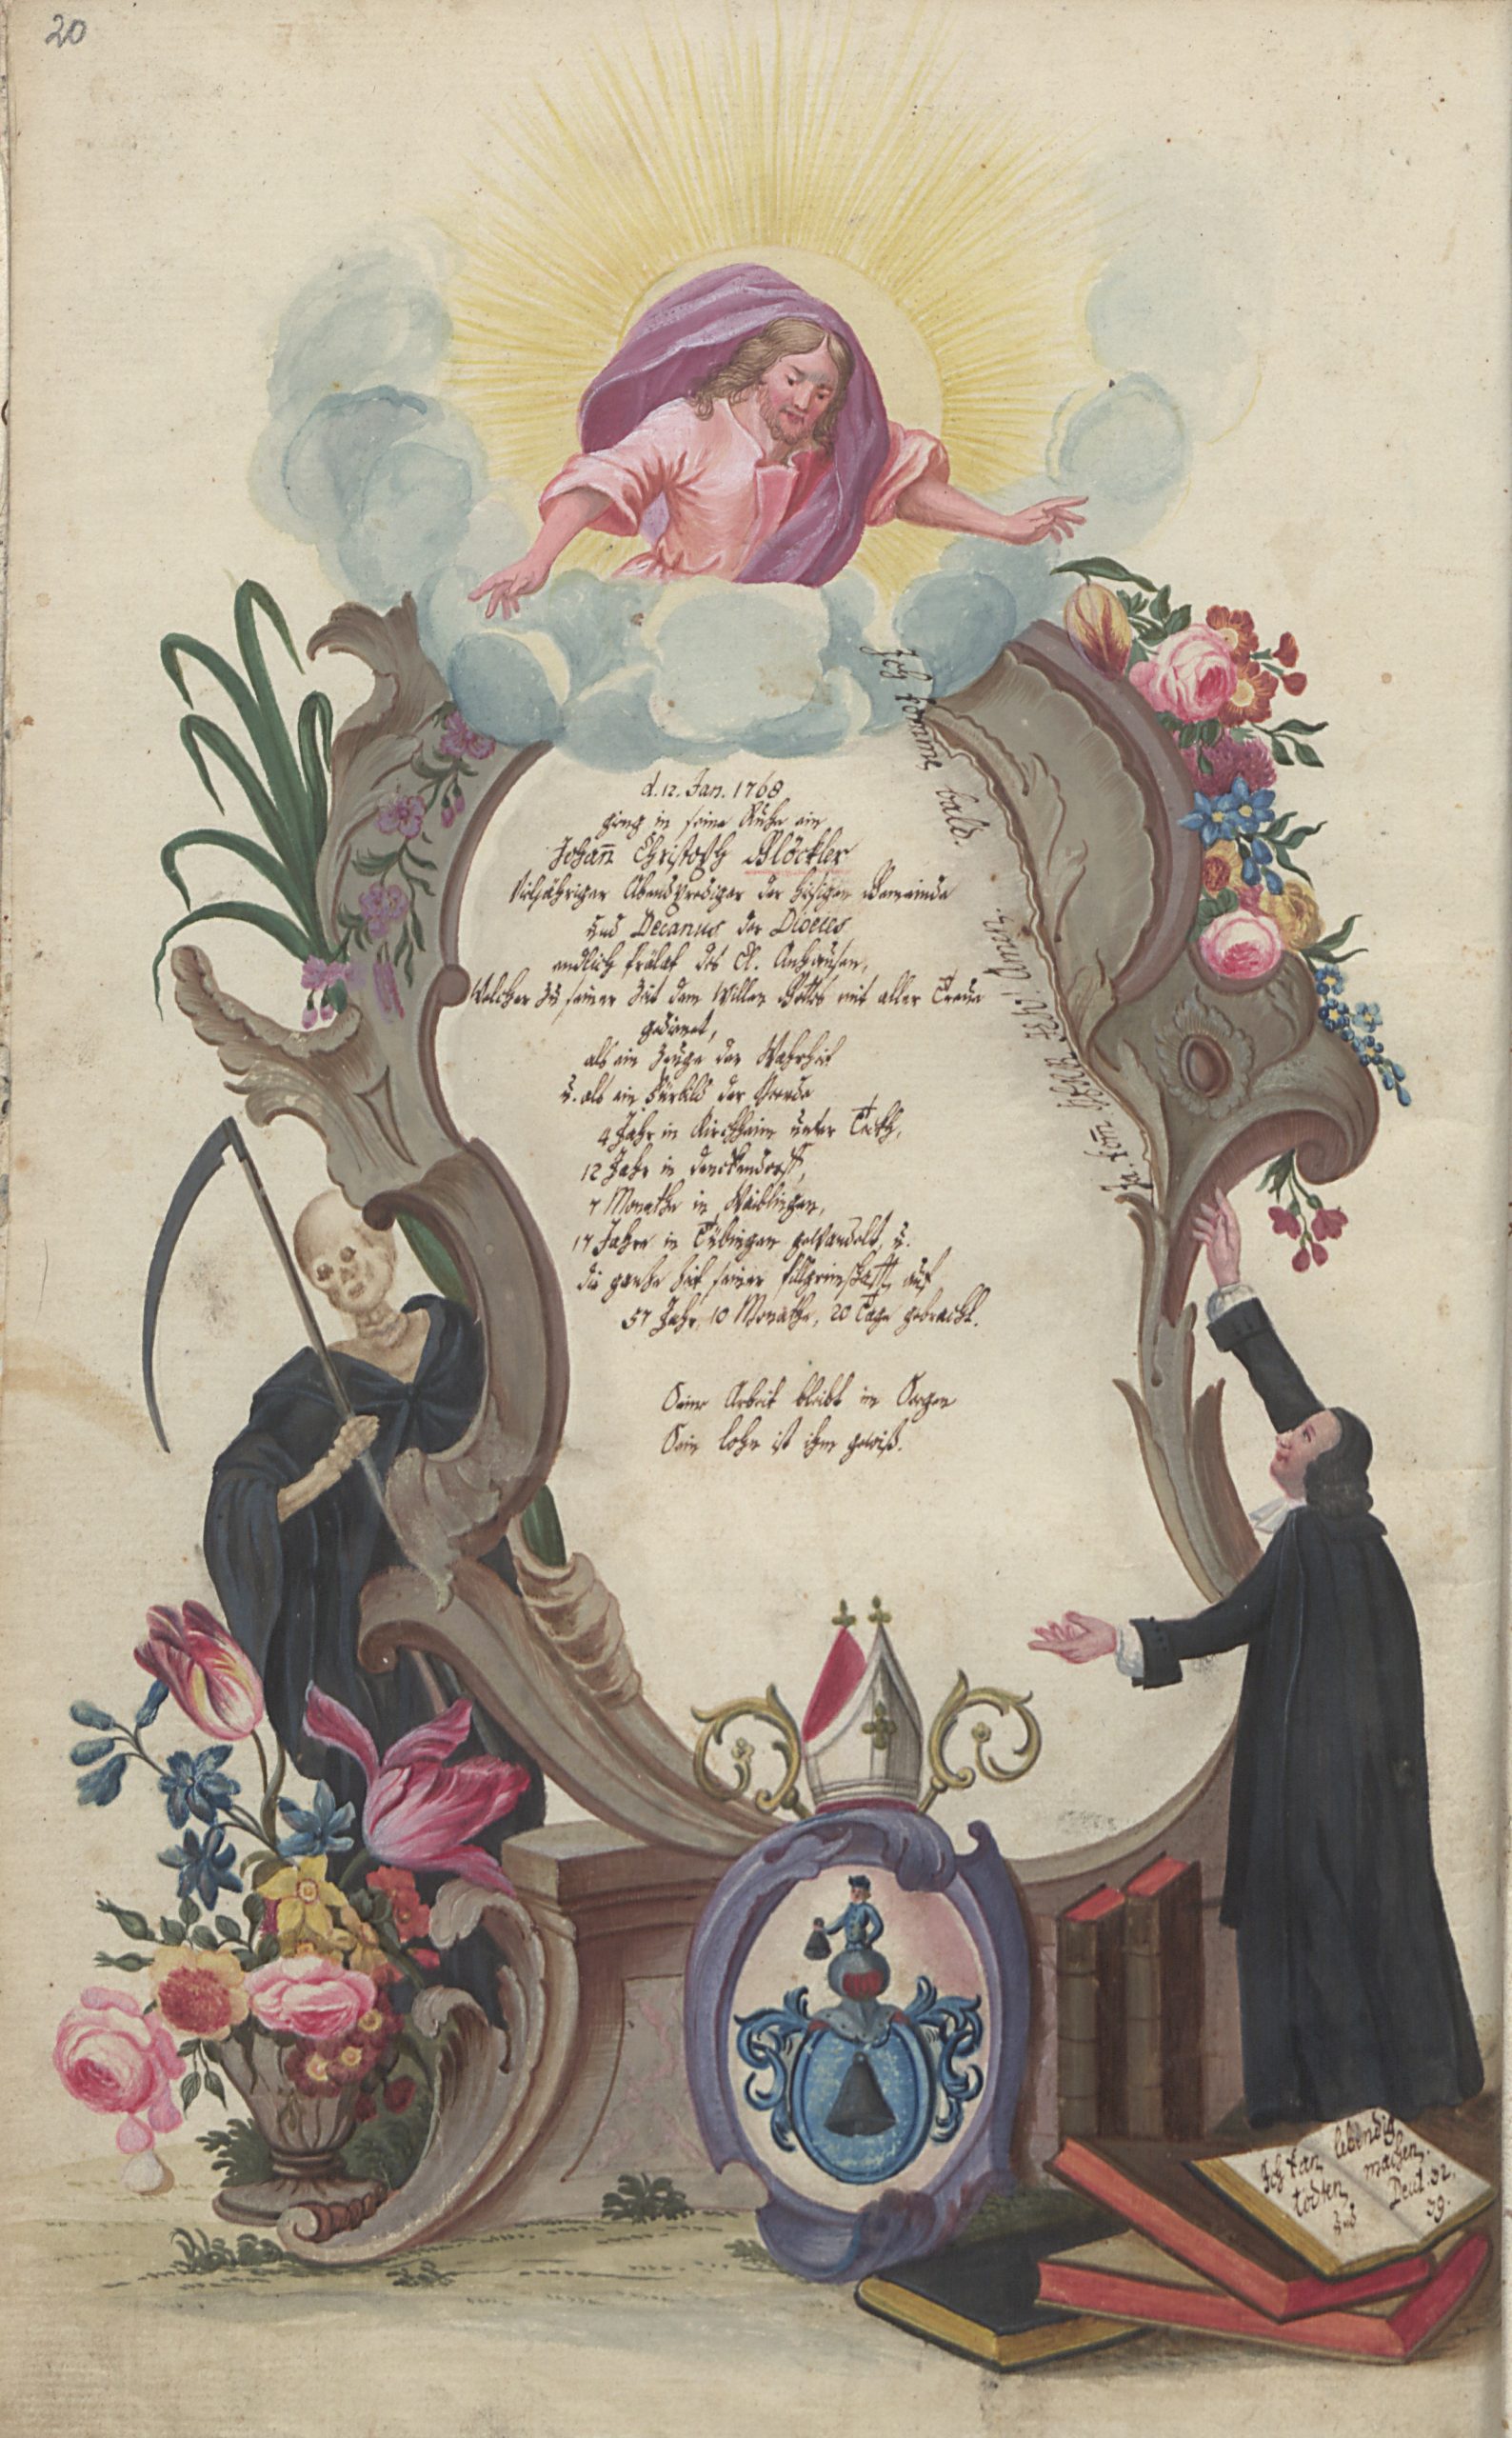 20
d. 12. Jan. 1768
gieng in seine Ruhe ein
Johan̅ Christoph Glöckler
Vieljähriger Abendprediger der hiesigen Gemeinde
und Decanus der Dioeces
endlich Prälat des Cl. Anhausen,
Welcher zu seiner Zeit dem Willen Gottes mit aller Treue
gedienet,
als ein Zeuge der Wahrheit
u. als ein Fürbild der Heerde
4 Jahr in Kirchheim unter Teckh,
12 Jahr in Denckendorff,
7 Monathe in Waiblingen,
17 Jahre in Tübingen gewandelt, u.
die gantze Zeit seiner Pilgrimschafft auf
57 Jahr, 10 Monathe, 20 Tage gebracht.
Seine Arbeit bleibt im Seegen
Sein Lohn ist ihm gewiß.
Ich komme bald.
Ja. kom̅ HErr JEsu. Amen.
Ich kan lebendig
tödten, machen.
und Deut. 32.
39.